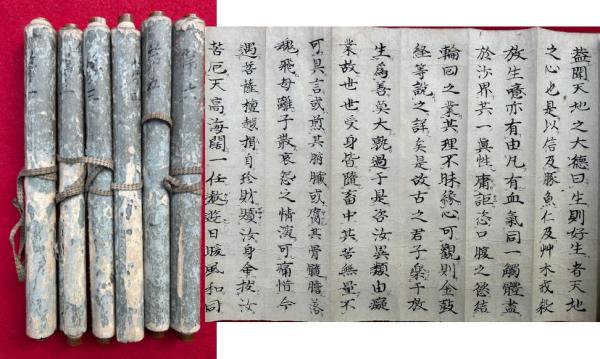 蓋聞天地之大德曰生則好生者天地
之心也是以信及豚魚仁及艸木戒殺
放生嘻亦有由凡有血氣同一觸體盡
於沙界共一眞性庸詎恣口腹之慾結
輪回之業其理不昧緣心可觀則金鼓
経等說之詳矣是故古之君子樂于放
生爲善莫大孰過于是咨汝異類由癡
業故世世受身皆隨畜中其苦無量不
可具言或煎其肪臓或腐其骨髓膽落
魂飛母離子散哀怨之情深可痛惜今
遇菩薩檀越捐自珍財贖汝身命按汝
苦厄天高海闊一任敖遊日暖風和同
第六
第五
三